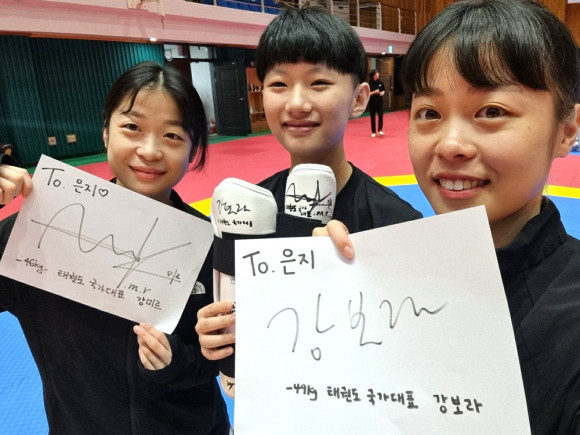 To. 은지♡
-46kg 태권도 국가대표 .m.r
강미르
To. 은지
강보라
-49kg 태권도 국가대표 강보라
강보라
국가대표
국가대표 .m.r